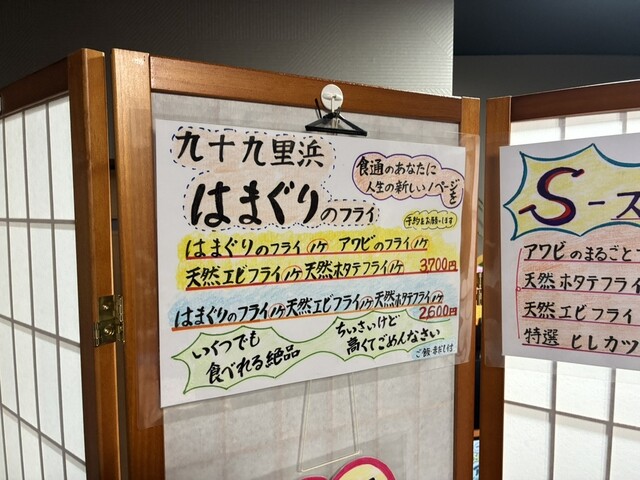 九十九里浜
はまぐりのフライ
食通のあなたに
人生の新しい1ページを
予約をお願いします
はまぐりのフライ1ケ アワビのフライ1ケ
天然エビフライ1ケ 天然ホタテフライ1ケ 3700円
はまぐりのフライ1ケ 天然エビフライ1ケ 天然ホタテフライ1ケ
2600円
いくつでも
食べれる絶品
ちいさいけど
高くてごめんなさい
ご飯・赤だし付
S-ス
アワビのまるごと
天然ホタテフライ
天然エビフライ
特選 ヒレカツ